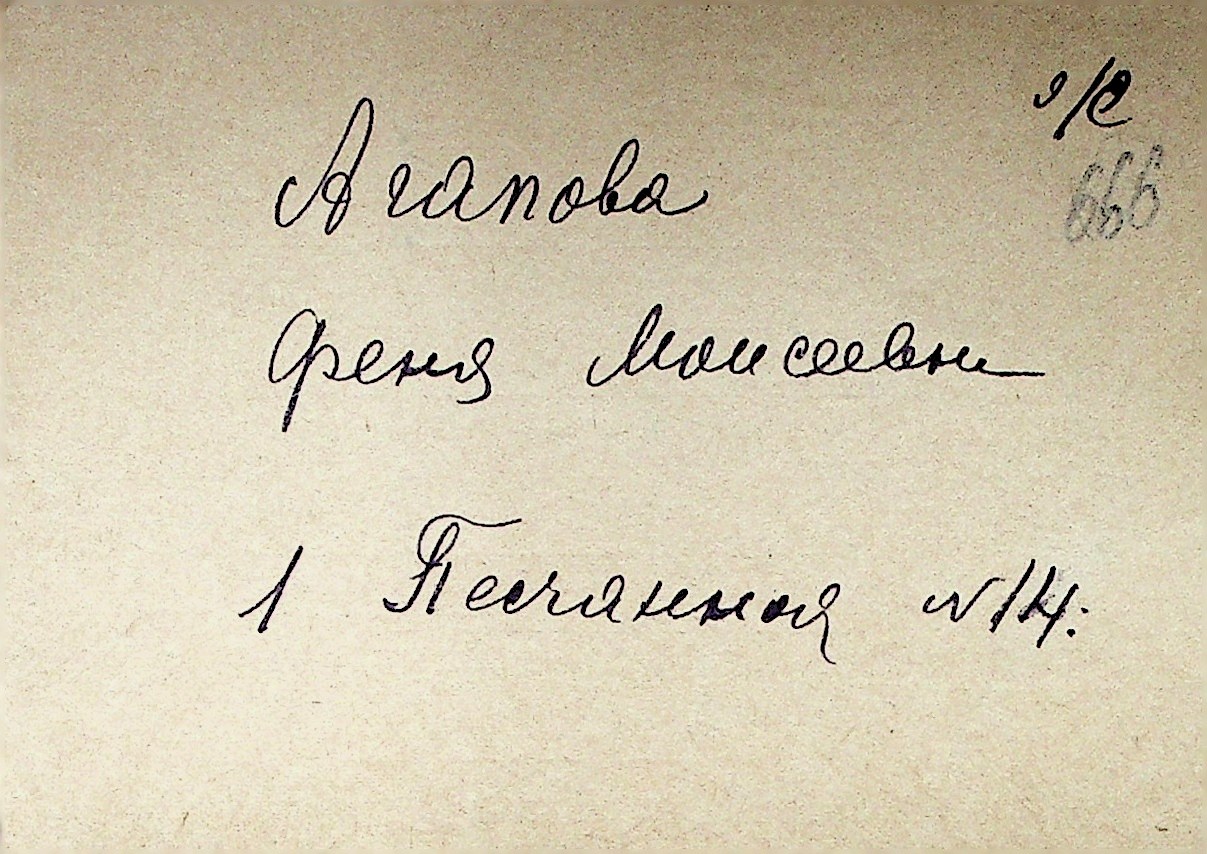 я/с
666
Агапова
Феня Моисеевн
1 Песчанная N 14.